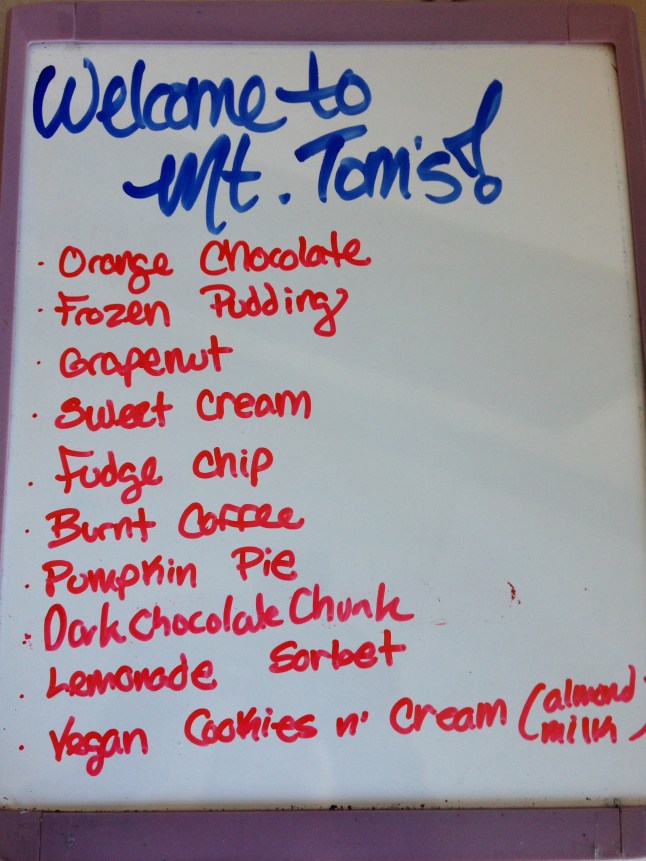 Welcome to
Mt. Tom's!
· Orange Chocolate
· Frozen Pudding
· Grapenut
· Sweet Cream
· Fudge Chip
· Burnt Coffee
· Pumpkin Pie
· Dark Chocolate Chunk
· Lemonade Sorbet
· Vegan Cookies n' Cream (almond milk)